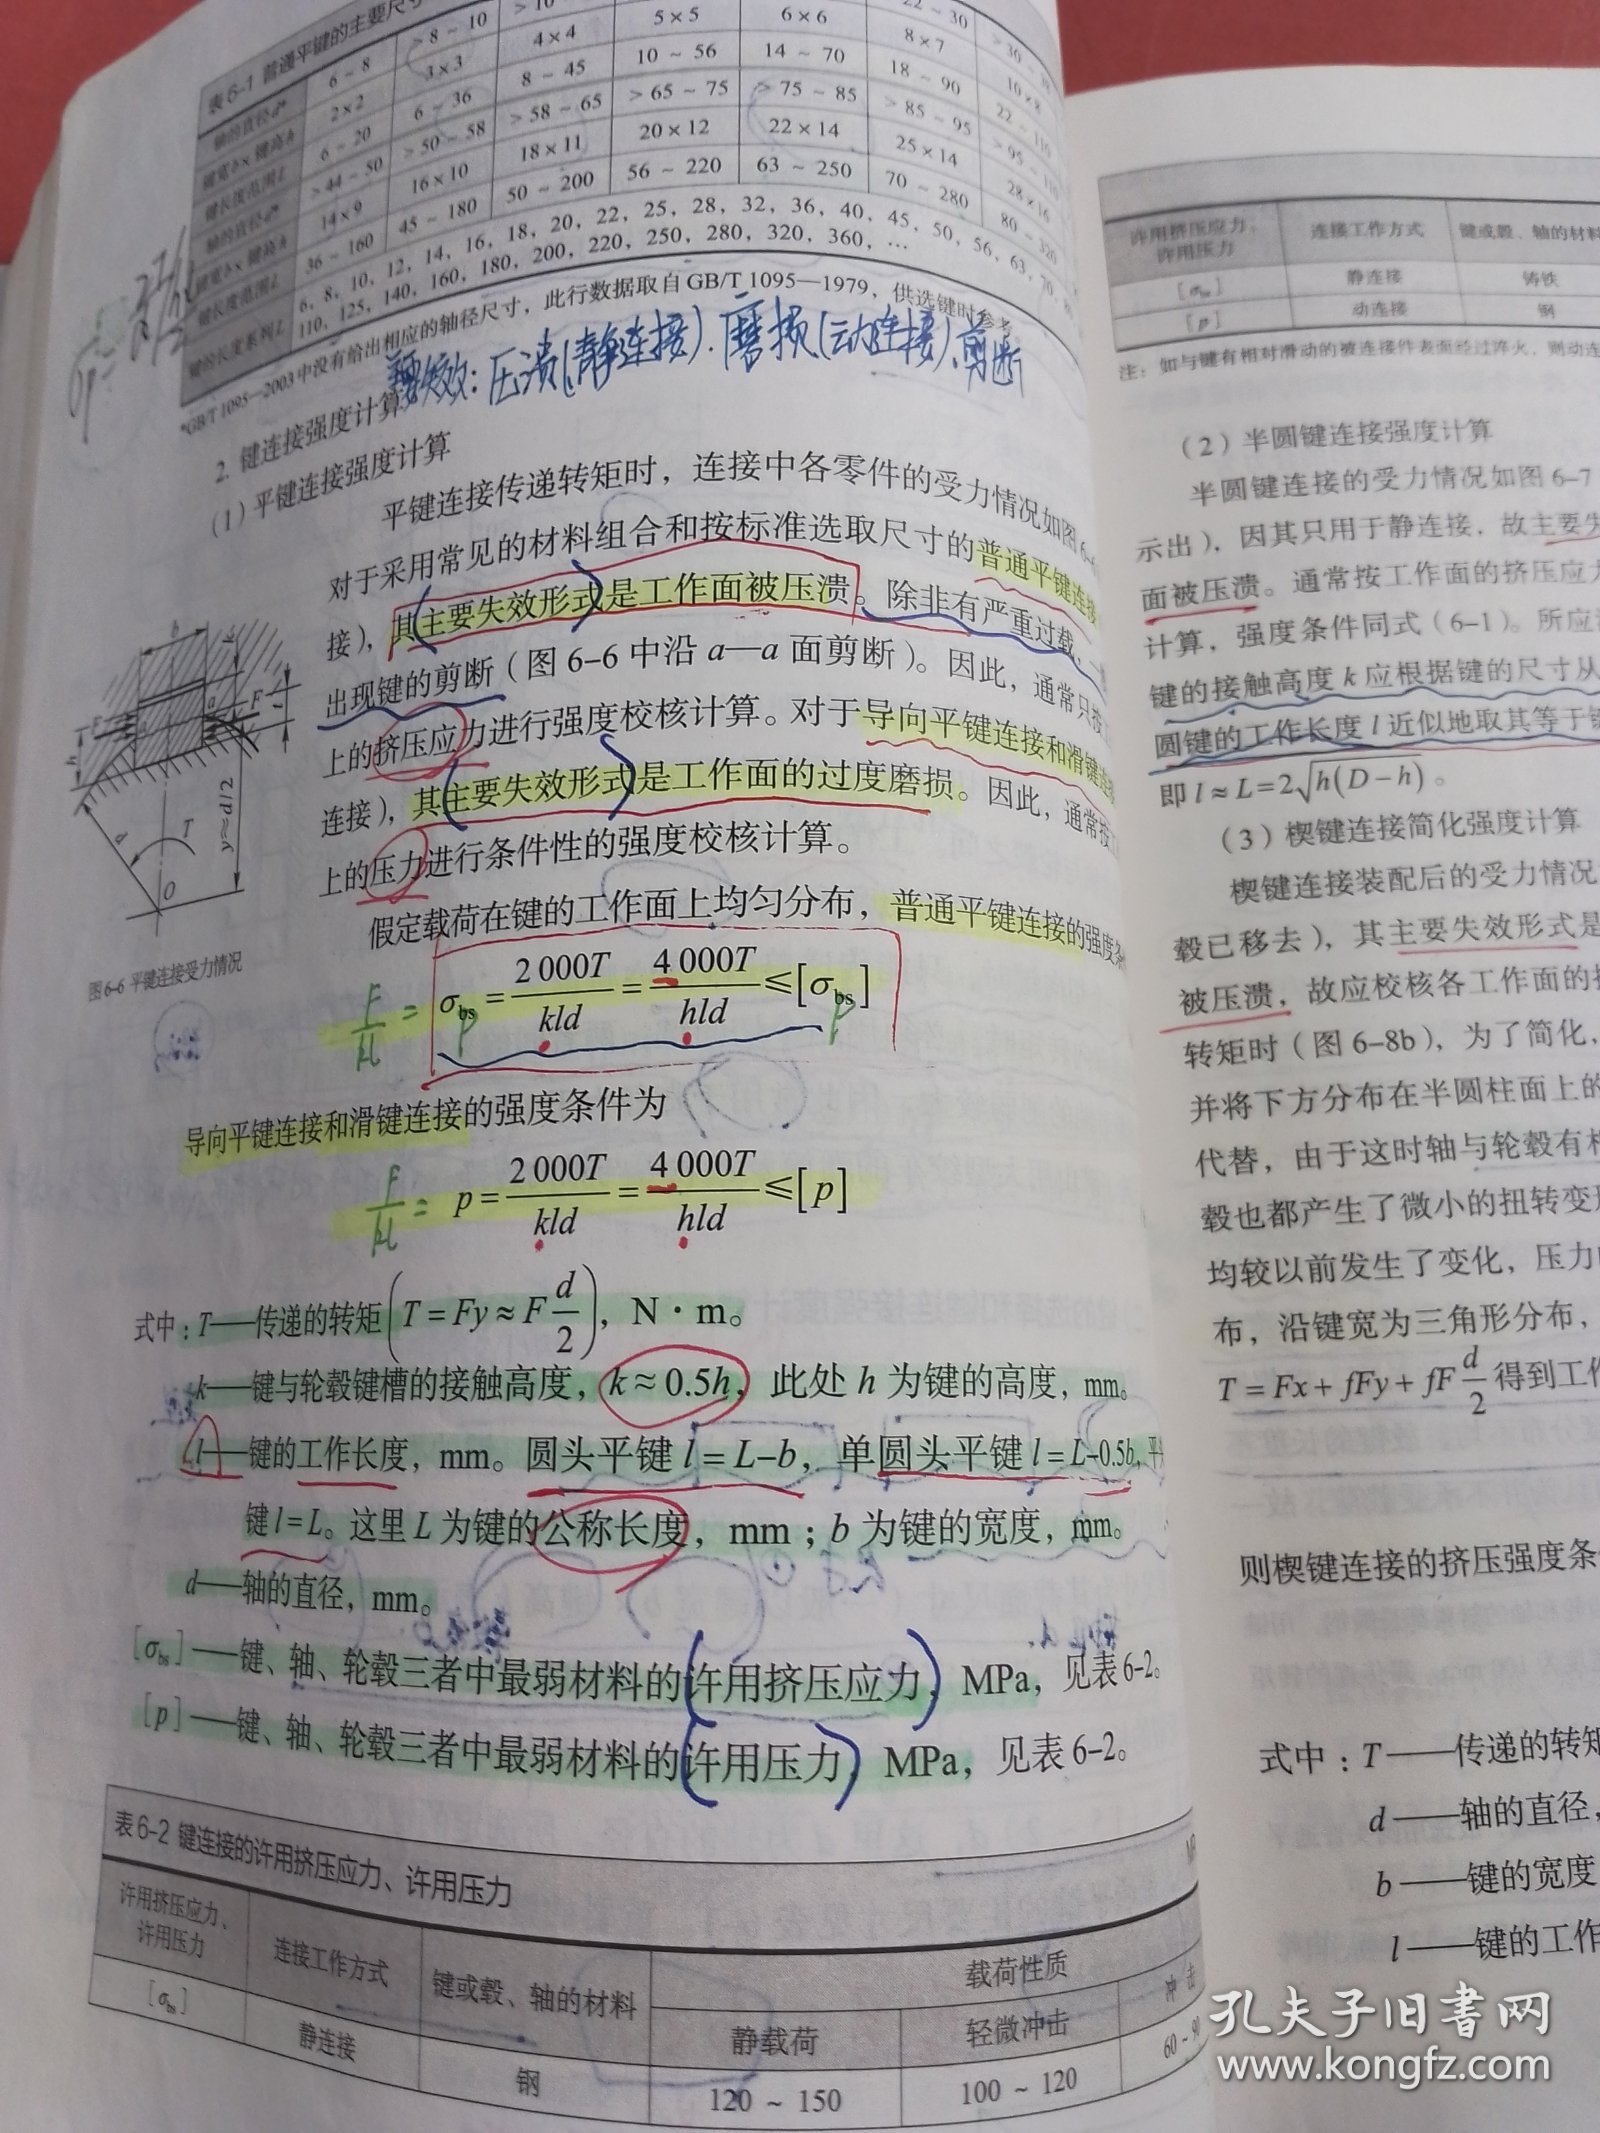 表6-1 普通平键的主要尺寸
轴的直径d* 6～8 >8～10 >10 22～30 >30
键宽b×键高h 2×2 3×3 4×4 5×5 6×6 8×7 10×8
键长度范围L 6～20 6～36 8～45 10～56 14～70 18～90 22～110
轴的直径d* >44～50 >50～58 >58～65 >65～75 >75～85 >85～95 >95～110
键宽b×键高h 14×9 16×10 18×11 20×12 22×14 25×14 28×16
键长度范围L 36～160 45～180 50～200 56～220 63～250 70～280 80～320
键的长度系列L 6，8，10，12，14，16，18，20，22，25，28，32，36，40，45，50，56，63，70，
110，125，140，160，180，200，220，250，280，320，360，…
*GB/T 1095—2003中没有给出相应的轴径尺寸，此行数据取自GB/T 1095—1979，供选键时参考。
失效：压溃(静连接)．磨损(动连接)．剪断
2. 键连接强度计算
（1）平键连接强度计算
平键连接传递转矩时，连接中各零件的受力情况如图6-
对于采用常见的材料组合和按标准选取尺寸的普通平键连接
接），其主要失效形式是工作面被压溃。除非有严重过载，一
出现键的剪断（图6-6中沿a—a面剪断）。因此，通常只按
上的挤压应力进行强度校核计算。对于导向平键连接和滑键连接
连接），其主要失效形式是工作面的过度磨损。因此，通常按
上的压力进行条件性的强度校核计算。
假定载荷在键的工作面上均匀分布，普通平键连接的强度条
图6-6 平键连接受力情况
F/kl = σbs = 2 000T/kld = 4 000T/hld ≤ [σbs]
p p
导向平键连接和滑键连接的强度条件为
F/kl = p = 2 000T/kld = 4 000T/hld ≤ [p]
式中：T——传递的转矩(T = Fy ≈ F d/2)，N·m。
k——键与轮毂键槽的接触高度，k≈0.5h，此处h为键的高度，mm。
l——键的工作长度，mm。圆头平键l=L-b，单圆头平键l=L-0.5b，平
键l=L。这里L为键的公称长度，mm；b为键的宽度，mm。
d——轴的直径，mm。
[σbs]——键、轴、轮毂三者中最弱材料的许用挤压应力，MPa，见表6-2。
[p]——键、轴、轮毂三者中最弱材料的许用压力，MPa，见表6-2。
表6-2 键连接的许用挤压应力、许用压力
许用挤压应力、许用压力 连接工作方式 键或毂、轴的材料 载荷性质
静载荷 轻微冲击 冲击
[σbs] 静连接 钢 120～150 100～120 60～90
许用挤压应力、许用压力 连接工作方式 键或毂、轴的材料
[σbs] 静连接 铸铁
[p] 动连接 钢
注：如与键有相对滑动的被连接件表面经过淬火，则动连
（2）半圆键连接强度计算
半圆键连接的受力情况如图6-7
示出），因其只用于静连接，故主要失
面被压溃。通常按工作面的挤压应力
计算，强度条件同式（6-1）。所应
键的接触高度k应根据键的尺寸从
圆键的工作长度l近似地取其等于键
即l≈L=2√h(D-h)。
（3）楔键连接简化强度计算
楔键连接装配后的受力情况
毂已移去），其主要失效形式是
被压溃，故应校核各工作面的挤
转矩时（图6-8b），为了简化，
并将下方分布在半圆柱面上的
代替，由于这时轴与轮毂有相
毂也都产生了微小的扭转变形
均较以前发生了变化，压力
布，沿键宽为三角形分布，
T = Fx + fFy + fF d/2 得到工作
则楔键连接的挤压强度条件
式中：T——传递的转矩
d——轴的直径，
b——键的宽度
l——键的工作
孔夫子旧书网
www.kongfz.com